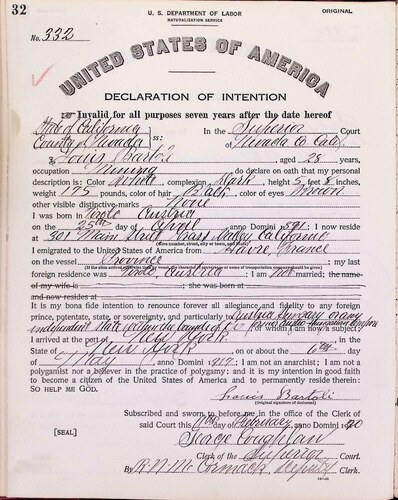 32
U. S. DEPARTMENT OF LABOR
NATURALIZATION SERVICE
ORIGINAL
No. 332
UNITED STATES OF AMERICA
DECLARATION OF INTENTION
Invalid for all purposes seven years after the date hereof
State of California
County of Nevada
ss:
In the Superior Court
of Nevada Co Calif.
I, Louis Bartoli, aged 28 years,
occupation Mining, do declare on oath that my personal
description is: Color White, complexion Dark, height 5 feet 8 inches,
weight 175 pounds, color of hair Black, color of eyes Brown
other visible distinctive marks None
I was born in Tirole Austria
on the 25th day of April, anno Domini 1891; I now reside
at 301 Main Street Grass Valley California
(Give number, street, city or town, and State.)
I emigrated to the United States of America from Havre, France
on the vessel Province; my last
foreign residence was Tirole, Austria; I am not married; the name
of my wife is; she was born at
and now resides at
It is my bona fide intention to renounce forever all allegiance and fidelity to any foreign
prince, potentate, state, or sovereignty, and particularly to Austria Hungary or any
independent state within the bounds of former Austro-Hungarian Empire, of whom I am now a subject;
I arrived at the port of New York, in the
State of New York, on or about the 6th day
of May, anno Domini; I am not an anarchist; I am not a
polygamist nor a believer in the practice of polygamy; and it is my intention in good faith
to become a citizen of the United States of America and to permanently reside therein:
SO HELP ME GOD.
Louis Bartoli
(Original signature of declarant)
Subscribed and sworn to before me in the office of the Clerk of
said Court this day of February, anno Domini 1920
[SEAL]
George Coughlan
Clerk of the Superior Court.
By R. N. McCormack, Deputy Clerk.